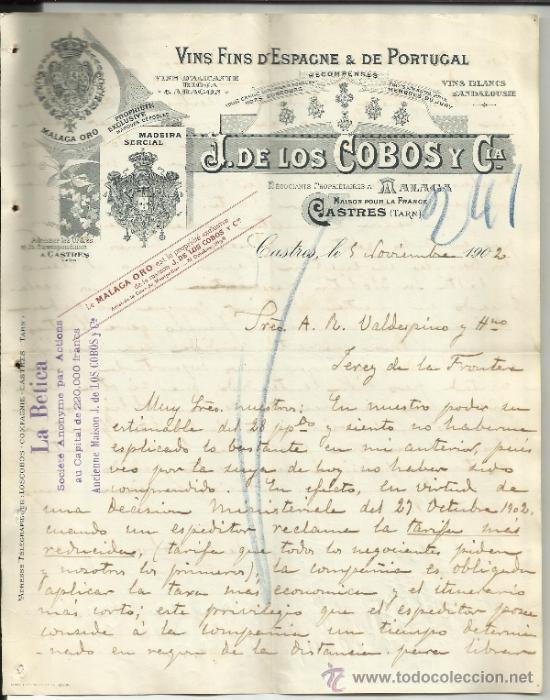 VINS FINS D'ESPAGNE & DE PORTUGAL
VINS D'ALICANTE
RIOJA
& ARAGON
RECOMPENSES
HORS CONCOURS
MEMBRES DU JURY
VINS BLANCS
D'ANDALOUSIE
MALAGA ORO
PROPRIETE
EXCLUSIVE
MARQUES DEPOSEES
MADEIRA
SERCIAL
J. DE LOS COBOS Y CIA
NÉGOCIANTS PROPRIÉTAIRES A MALAGA
MAISON POUR LA FRANCE
CASTRES (TARN)
241
Adresser les Ordres
et la Correspondance
A CASTRES
TARN
Le MALAGA ORO est la propriété exclusive
de la maison J. DE LOS COBOS Y Cie
Castres, le 5 Noviembre 1902
La Betica
Société Anonyme par Actions
au Capital de 220.000 francs
Ancienne Maison J. de LOS COBOS y Cª
ADRESSE TELEGRAPHIQUE: LOSCOBOS-COMPAGNIE-CASTRES TARN
Sres. A. R. Valdespino y Hno
Jerez de la Frontera
Muy Sres. nuestros: En nuestro poder su
estimable del 28 ppdo y siento no haberme
esplicado lo bastante en mi anterior, pués
veo por la suya de hoy no haber sido
comprendido. En efecto, en virtud de
una Decision Ministeriele del 27 Octubre 1902
cuando un espeditor reclame la tarifa más
reducida, (tarifa que todos los negociantes piden
y nosotros los primeros), la compañia es obligada
aplicar la taxa mas economica y el itinerario
más corto; este privilegio que el espeditor posee
consede á la compañia un tiempo determi
nado en razon de la distancia para librar
todocoleccion.net